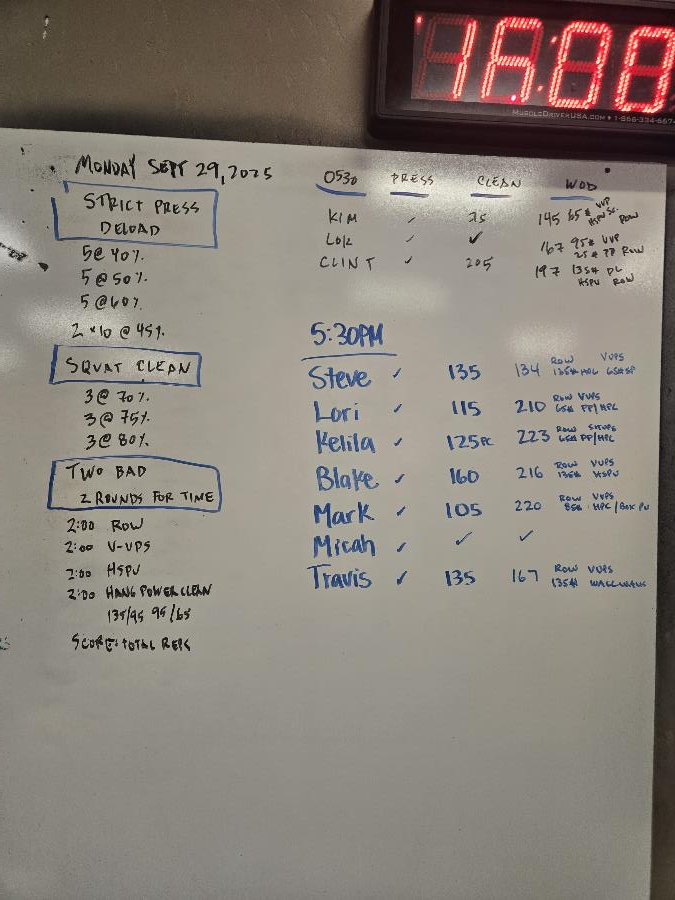 16:00
MUSCLEDRIVERUSA.COM • 1-866-334-667
MONDAY SEPT 29, 2025
STRICT PRESS
DELOAD
5@40%
5@50%
5@60%
2×10@45%
SQUAT CLEAN
3@70%
3@75%
3@80%
TWO BAD
2 ROUNDS FOR TIME
2:00 ROW
2:00 V-UPS
2:00 HSPU
2:00 HANG POWER CLEAN
135/95 95/65
SCORE: TOTAL REPS
0530 PRESS CLEAN WOD
KIM ✓ 75 145 65# VUP
HSPU SC. ROW
LOK ✓ ✓ 167 95# VUP
25# PP ROW
CLINT ✓ 205 197 135# DL
HSPU ROW
5:30PM
Steve ✓ 135 134 ROW VUPS
135# 65# SP
Lori ✓ 115 210 ROW VUPS
65# PP/HPC
Kelila ✓ 125PC 223 ROW
65# PP/HPC
Blake ✓ 160 216 ROW VUPS
135# HSPU
Mark ✓ 105 220 ROW VUPS
85# HPC/BOX PU
Micah ✓ ✓ ✓
Travis ✓ 135 167 ROW VUPS
135# WALLWALKS